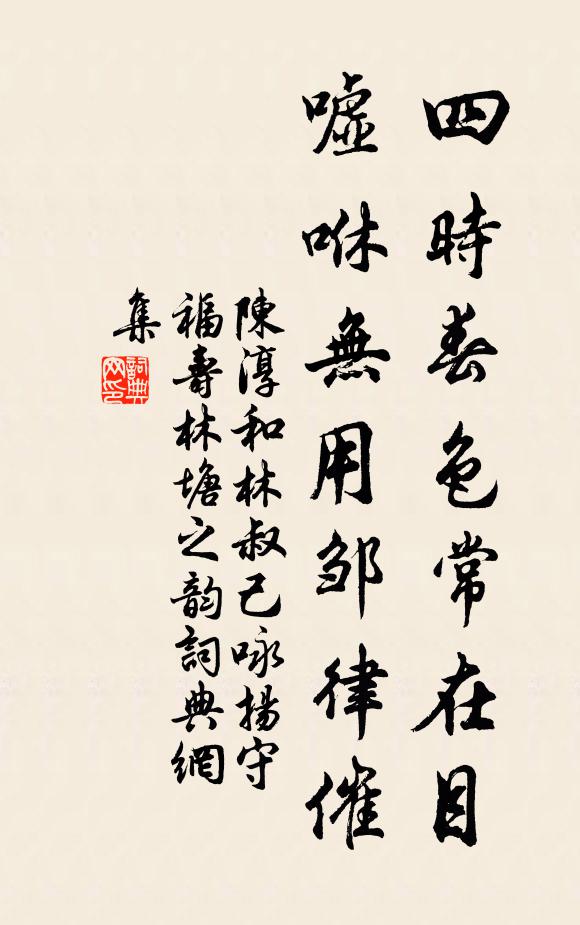 四時春色常在目
噓咻無用邹律催
陳淳和林叔己咏揚守
福壽林塘之韵詞典網
集
詞典
网印